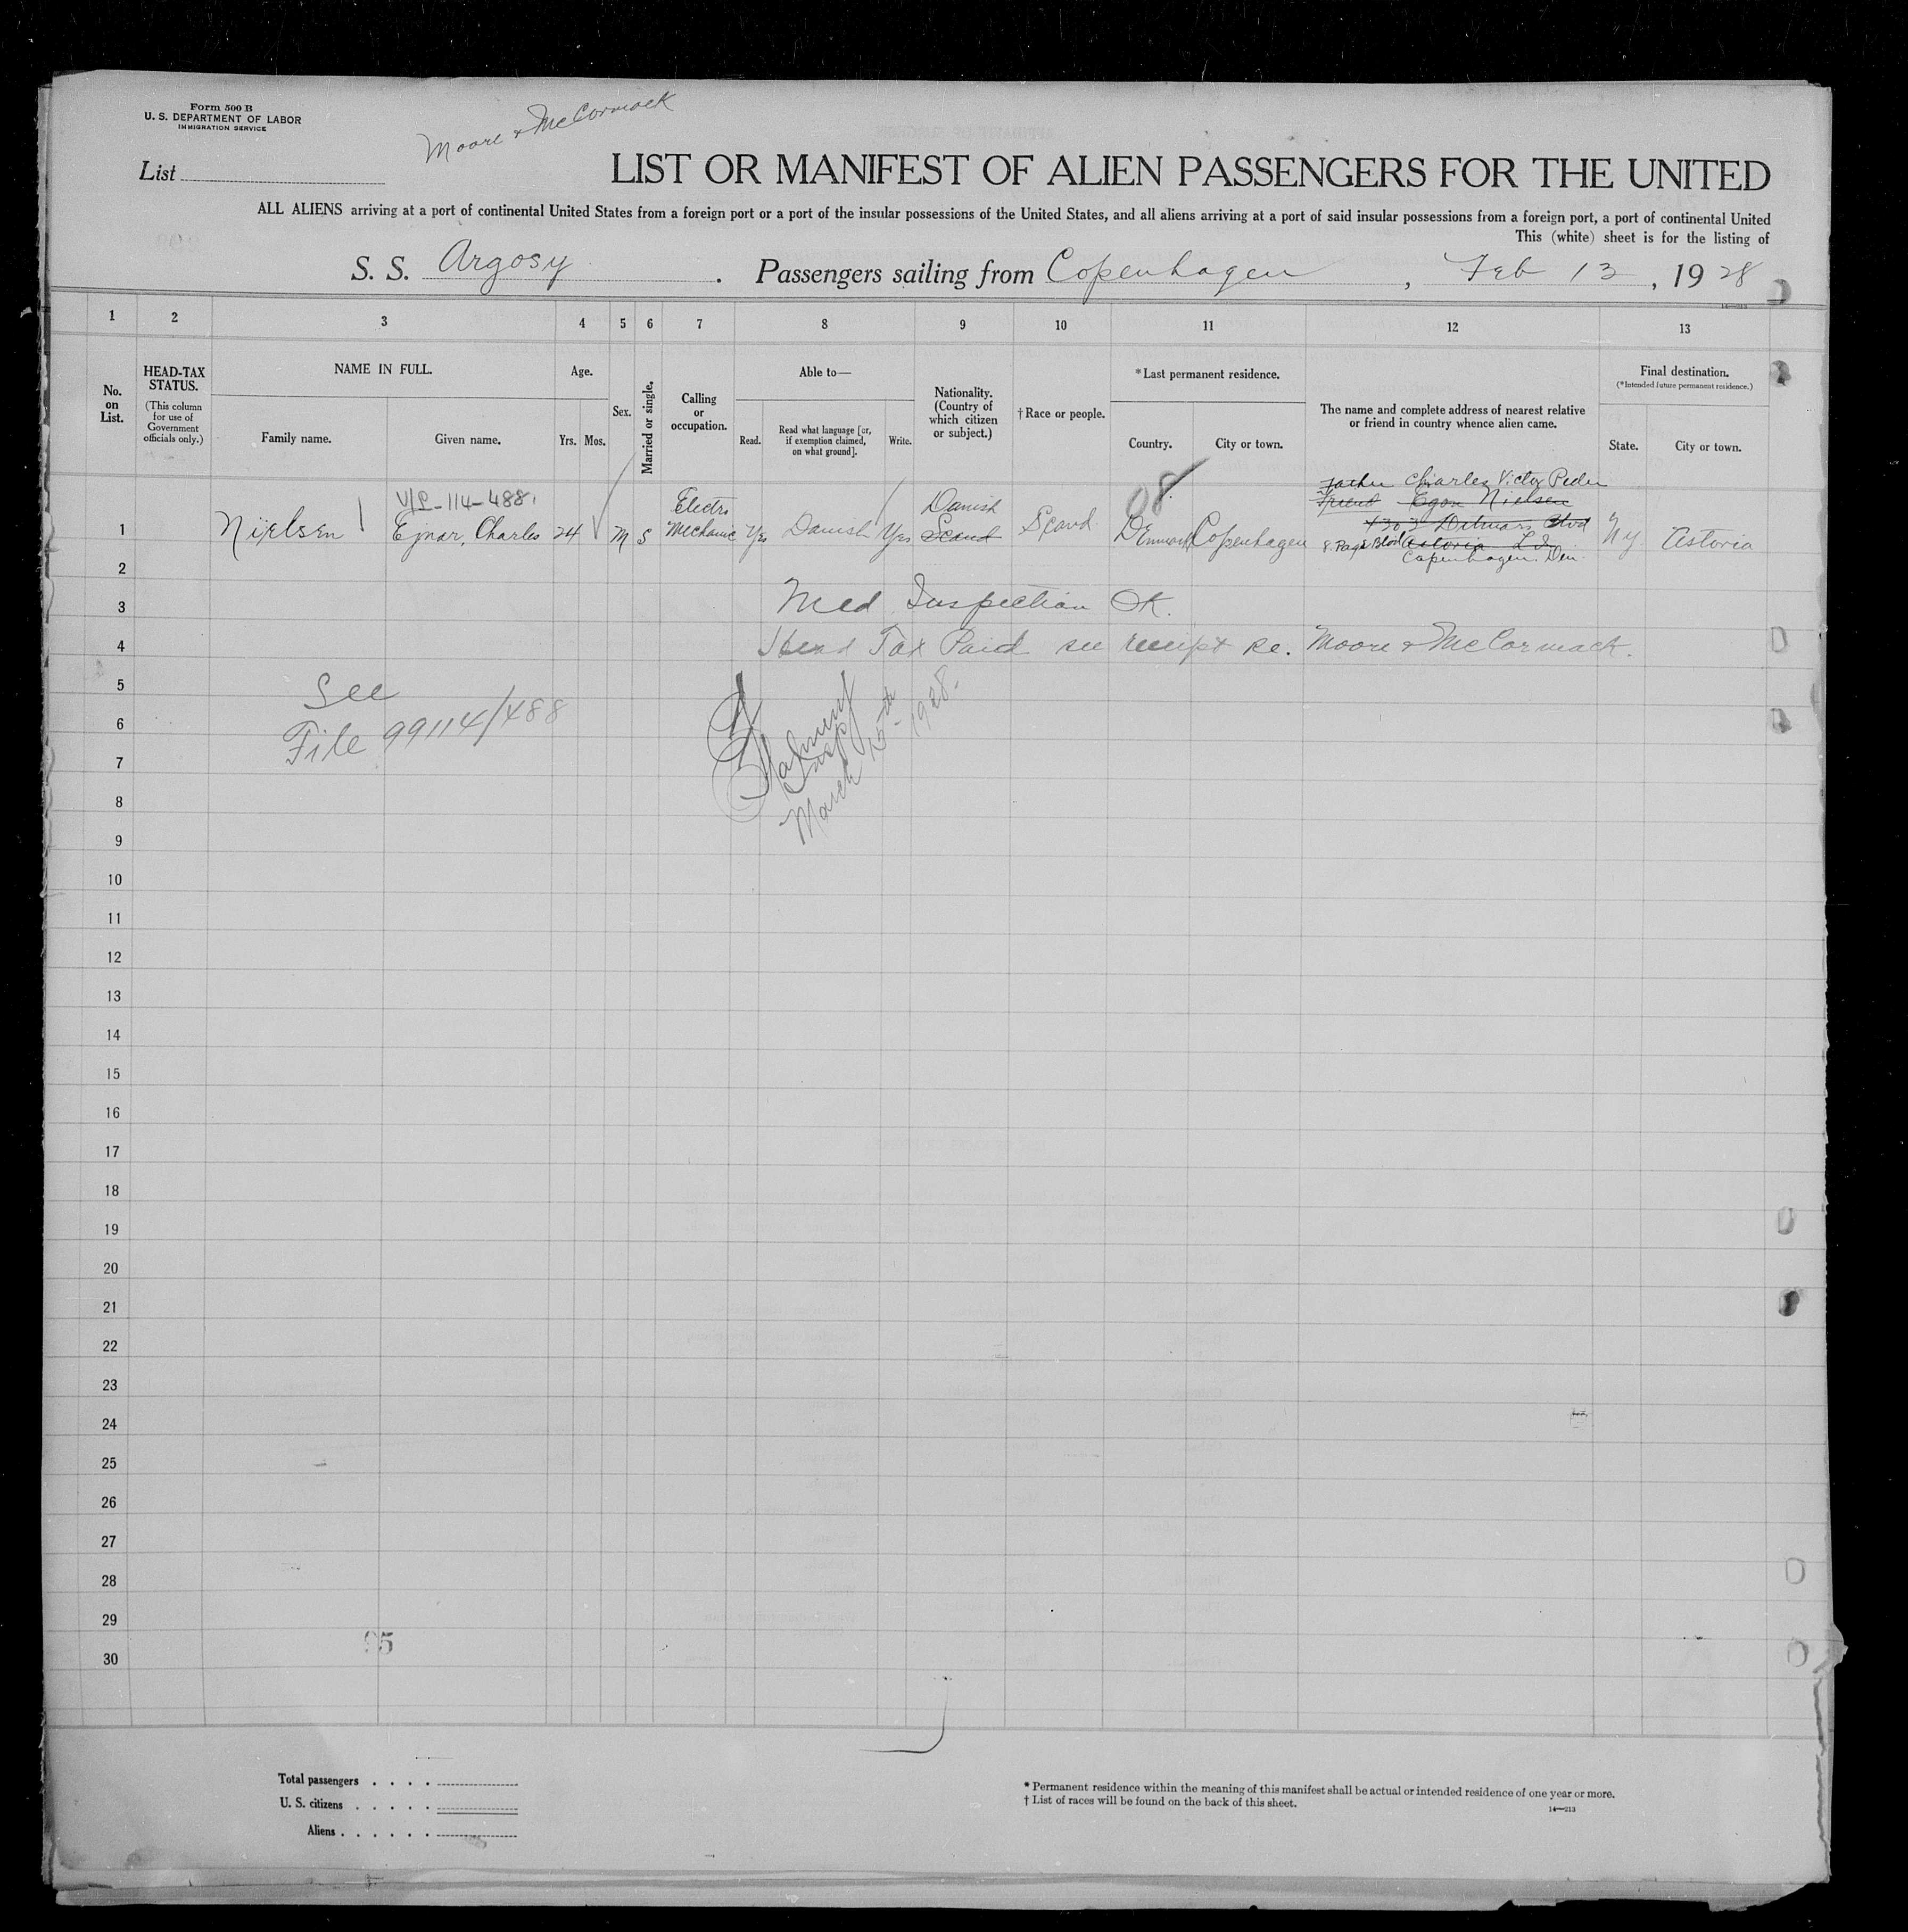 Form 500 B
U. S. DEPARTMENT OF LABOR
IMMIGRATION SERVICE
Moore & McCormack
List
LIST OR MANIFEST OF ALIEN PASSENGERS FOR THE UNITED
ALL ALIENS arriving at a port of continental United States from a foreign port or a port of the insular possessions of the United States, and all aliens arriving at a port of said insular possessions from a foreign port, a port of continental United
This (white) sheet is for the listing of
S. S. Argosy . Passengers sailing from Copenhagen , Feb 13 , 19 28
1 2 3 4 5 6 7 8 9 10 11 12 13
No. on List.
HEAD-TAX STATUS.
(This column for use of Government officials only.)
NAME IN FULL.
Family name. Given name.
Age.
Yrs. Mos.
Sex.
Married or single.
Calling or occupation.
Able to—
Read. Read what language [or, if exemption claimed, on what ground]. Write.
Nationality. (Country of which citizen or subject.)
† Race or people.
*Last permanent residence.
Country. City or town.
The name and complete address of nearest relative or friend in country whence alien came.
Final destination.
(*Intended future permanent residence.)
State. City or town.
08
Father Charles Victor Peder
V/P-114-488. Electr. Danish Friend Egon Nielsen
1 Nielsen Ejnar, Charles 24 M S Mechanic Yes Danish Yes Scand Scand. Denmark Copenhagen Ditmars Blvd Ny Astoria
Astoria L I
Copenhagen Den
2
3 Med Inspection OK.
4 Head Tax Paid see receipt Re. Moore & McCormack.
5 See
6 File 99114/488
7 Insp
8 March 15th 1928.
9
10
11
12
13
14
15
16
17
18
19
20
21
22
23
24
25
26
27
28
29
95
30
Total passengers . . . .
U. S. citizens . . . . .
Aliens . . . . . .
* Permanent residence within the meaning of this manifest shall be actual or intended residence of one year or more.
† List of races will be found on the back of this sheet.
14—213